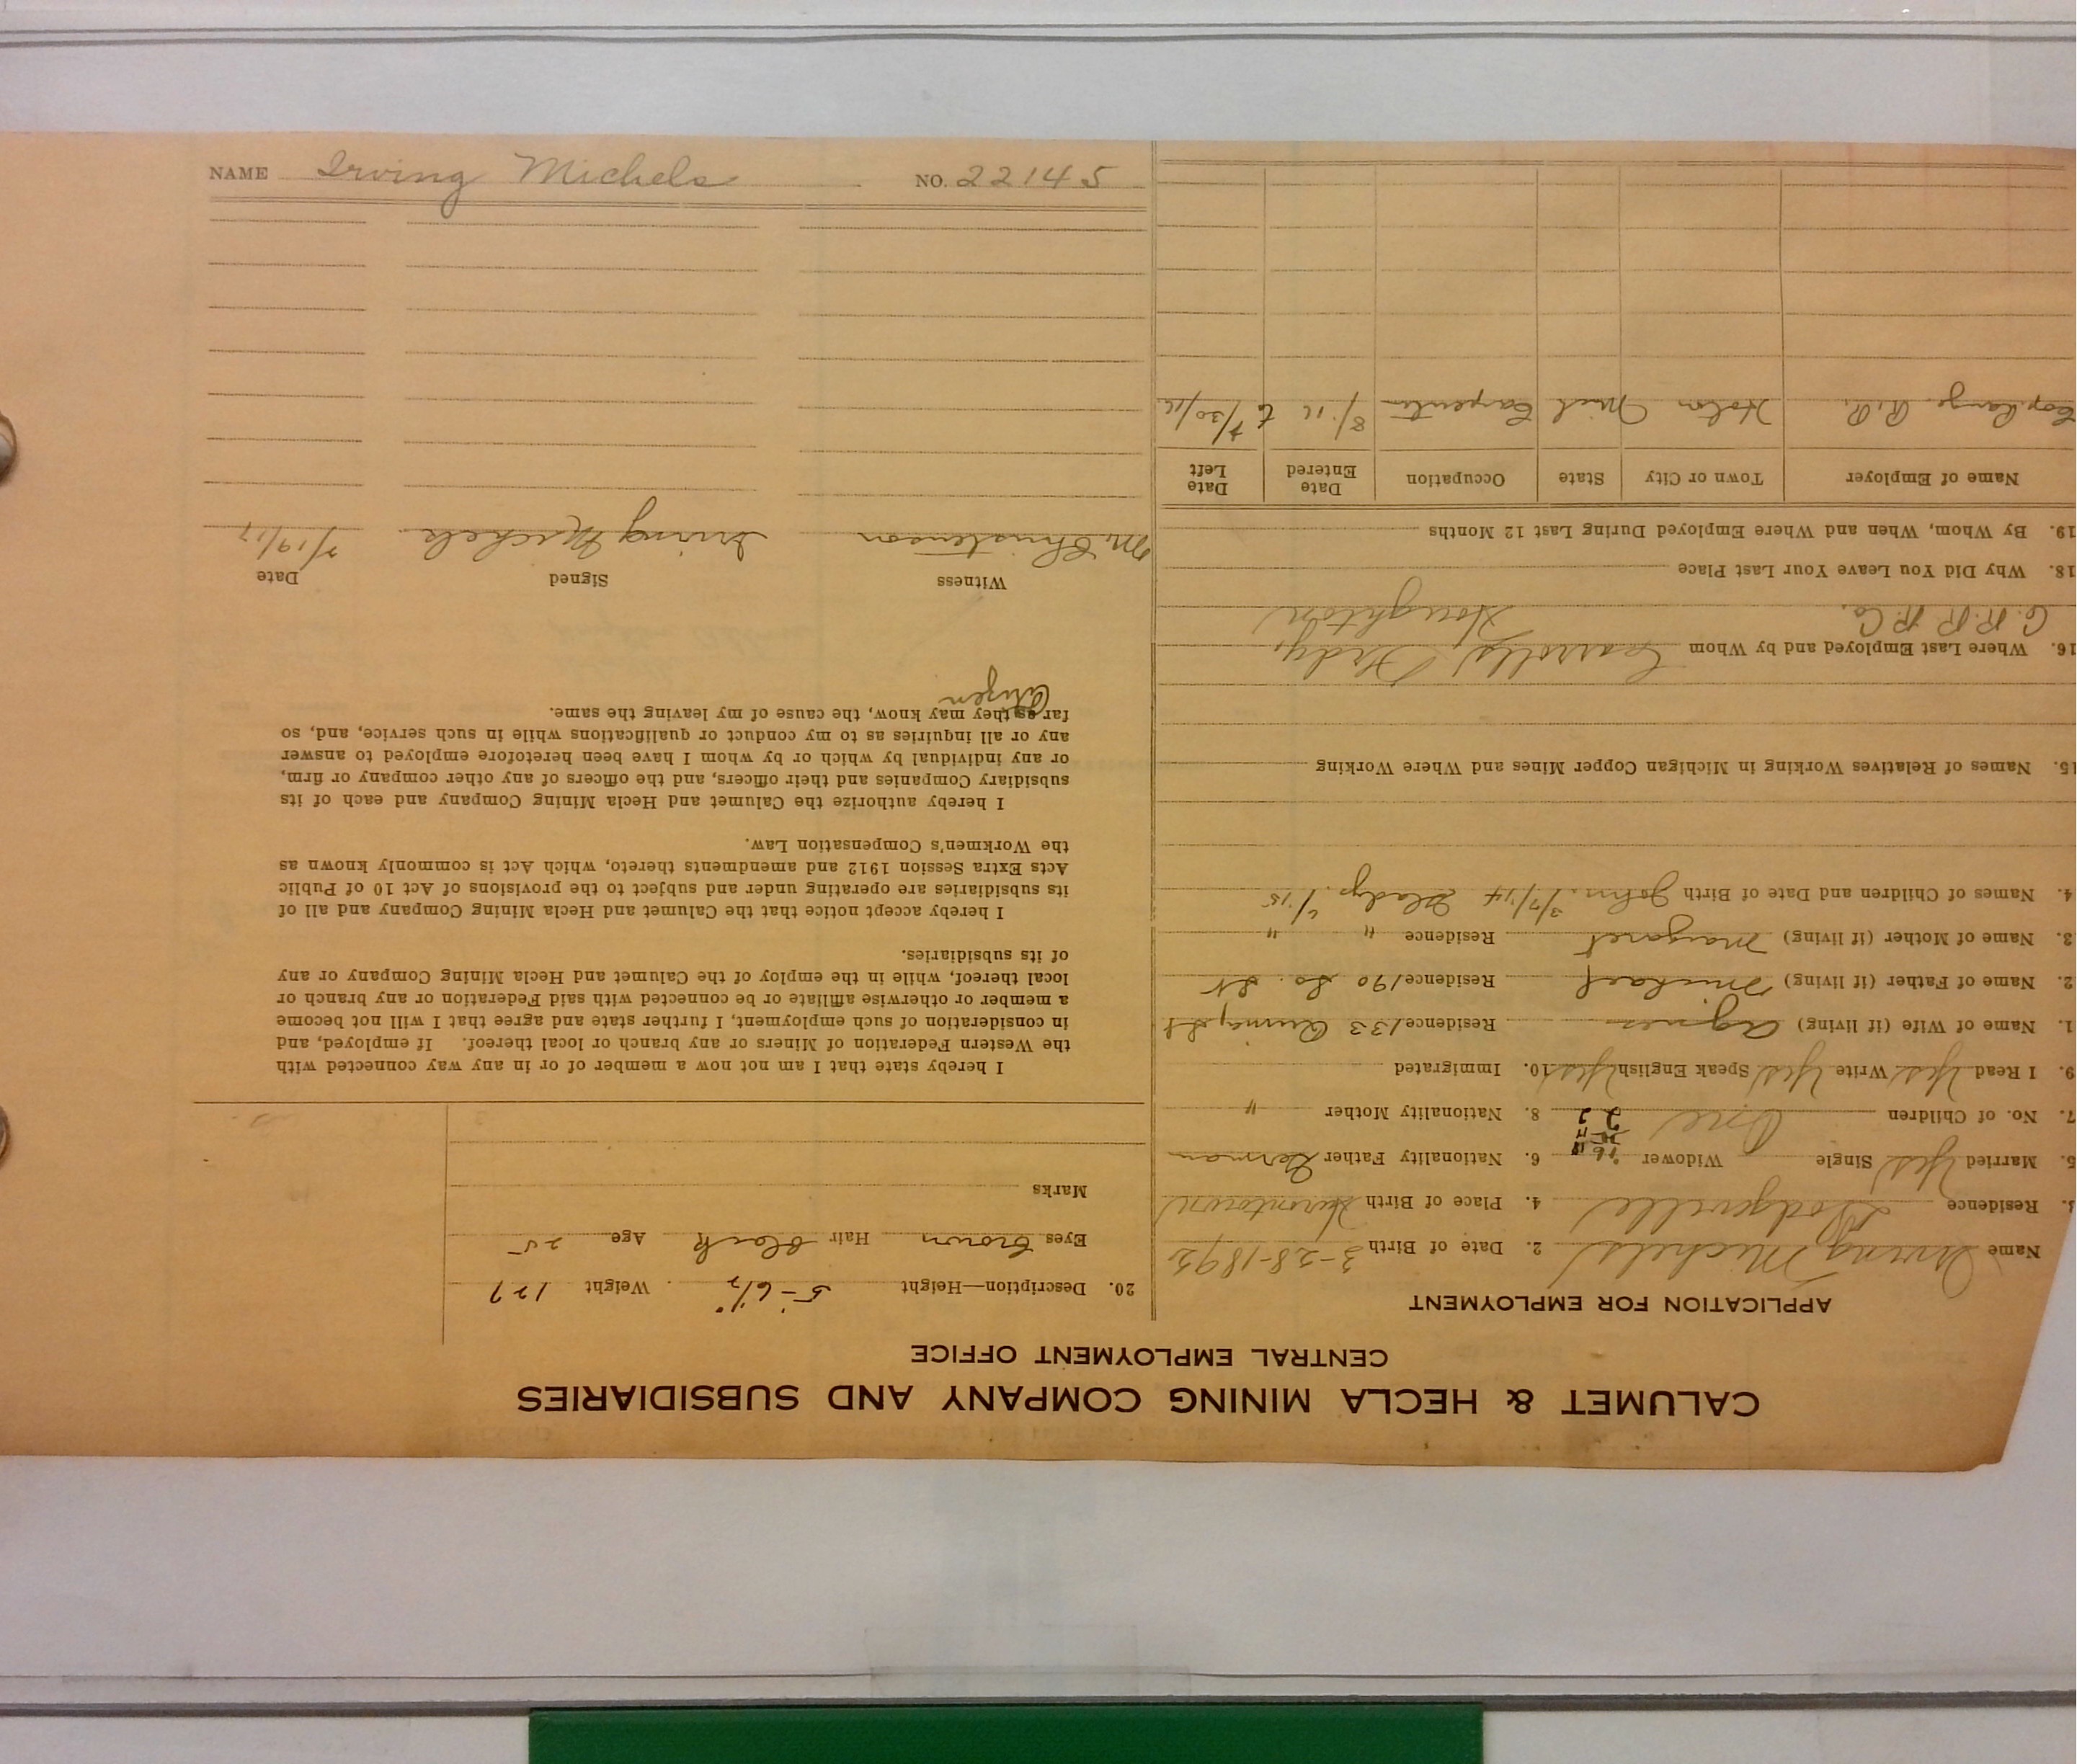 CALUMET & HECLA MINING COMPANY AND SUBSIDIARIES
CENTRAL EMPLOYMENT OFFICE
APPLICATION FOR EMPLOYMENT
Name Irving Michels 2. Date of Birth 3-28-1892
Residence Dodgeville 4. Place of Birth Hurontown
5. Married Yes Single Widower 6. Nationality Father German
7. No. of Children One 2 2 8. Nationality Mother "
9. I Read Yes Write Yes Speak English Yes 10. Immigrated
1. Name of Wife (if living) Agnes Residence 133 Quincy St
2. Name of Father (if living) Michael Residence 190 So. St
3. Name of Mother (if living) Margaret Residence " "
4. Names of Children and Date of Birth John 3/7/14 Gladys 6/15
15. Names of Relatives Working in Michigan Copper Mines and Where Working
16. Where Last Employed and by Whom Carrolls Frdy,
C. R. R. R. Co. Houghton
18. Why Did You Leave Your Last Place
19. By Whom, When and Where Employed During Last 12 Months
Name of Employer Town or City State Occupation Date Entered Date Left
Cop. Range R.R. Mich Carpenter 8/16 to
20. Description—Height 5'-6½" Weight 127
Eyes Brown Hair Black Age 25
Marks
I hereby state that I am not now a member of or in any way connected with
the Western Federation of Miners or any branch or local thereof. If employed, and
in consideration of such employment, I further state and agree that I will not become
a member or otherwise affiliate or be connected with said Federation or any branch or
local thereof, while in the employ of the Calumet and Hecla Mining Company or any
of its subsidiaries.
I hereby accept notice that the Calumet and Hecla Mining Company and all of
its subsidiaries are operating under and subject to the provisions of Act 10 of Public
Acts Extra Session 1912 and amendments thereto, which Act is commonly known as
the Workmen's Compensation Law.
I hereby authorize the Calumet and Hecla Mining Company and each of its
subsidiary Companies and their officers, and the officers of any other company or firm,
or any individual by which or by whom I have been heretofore employed to answer
any or all inquiries as to my conduct or qualifications while in such service, and, so
far as they may know, the cause of my leaving the same.
Citizen
Witness Signed Date
M. Christenson Irving Michels 7/19/17
NAME Irving Michels NO. 22145